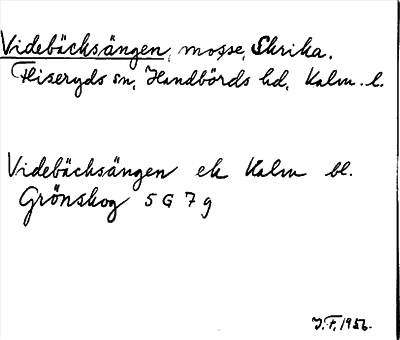 Videbäcksängen, mosse, Skrika.
Fliseryds sn, Handbörds hd, Kalm. l.
Videbäcksängen ek Kalm bl.
Grönskog 5 G 7 g
J.F. 1956.